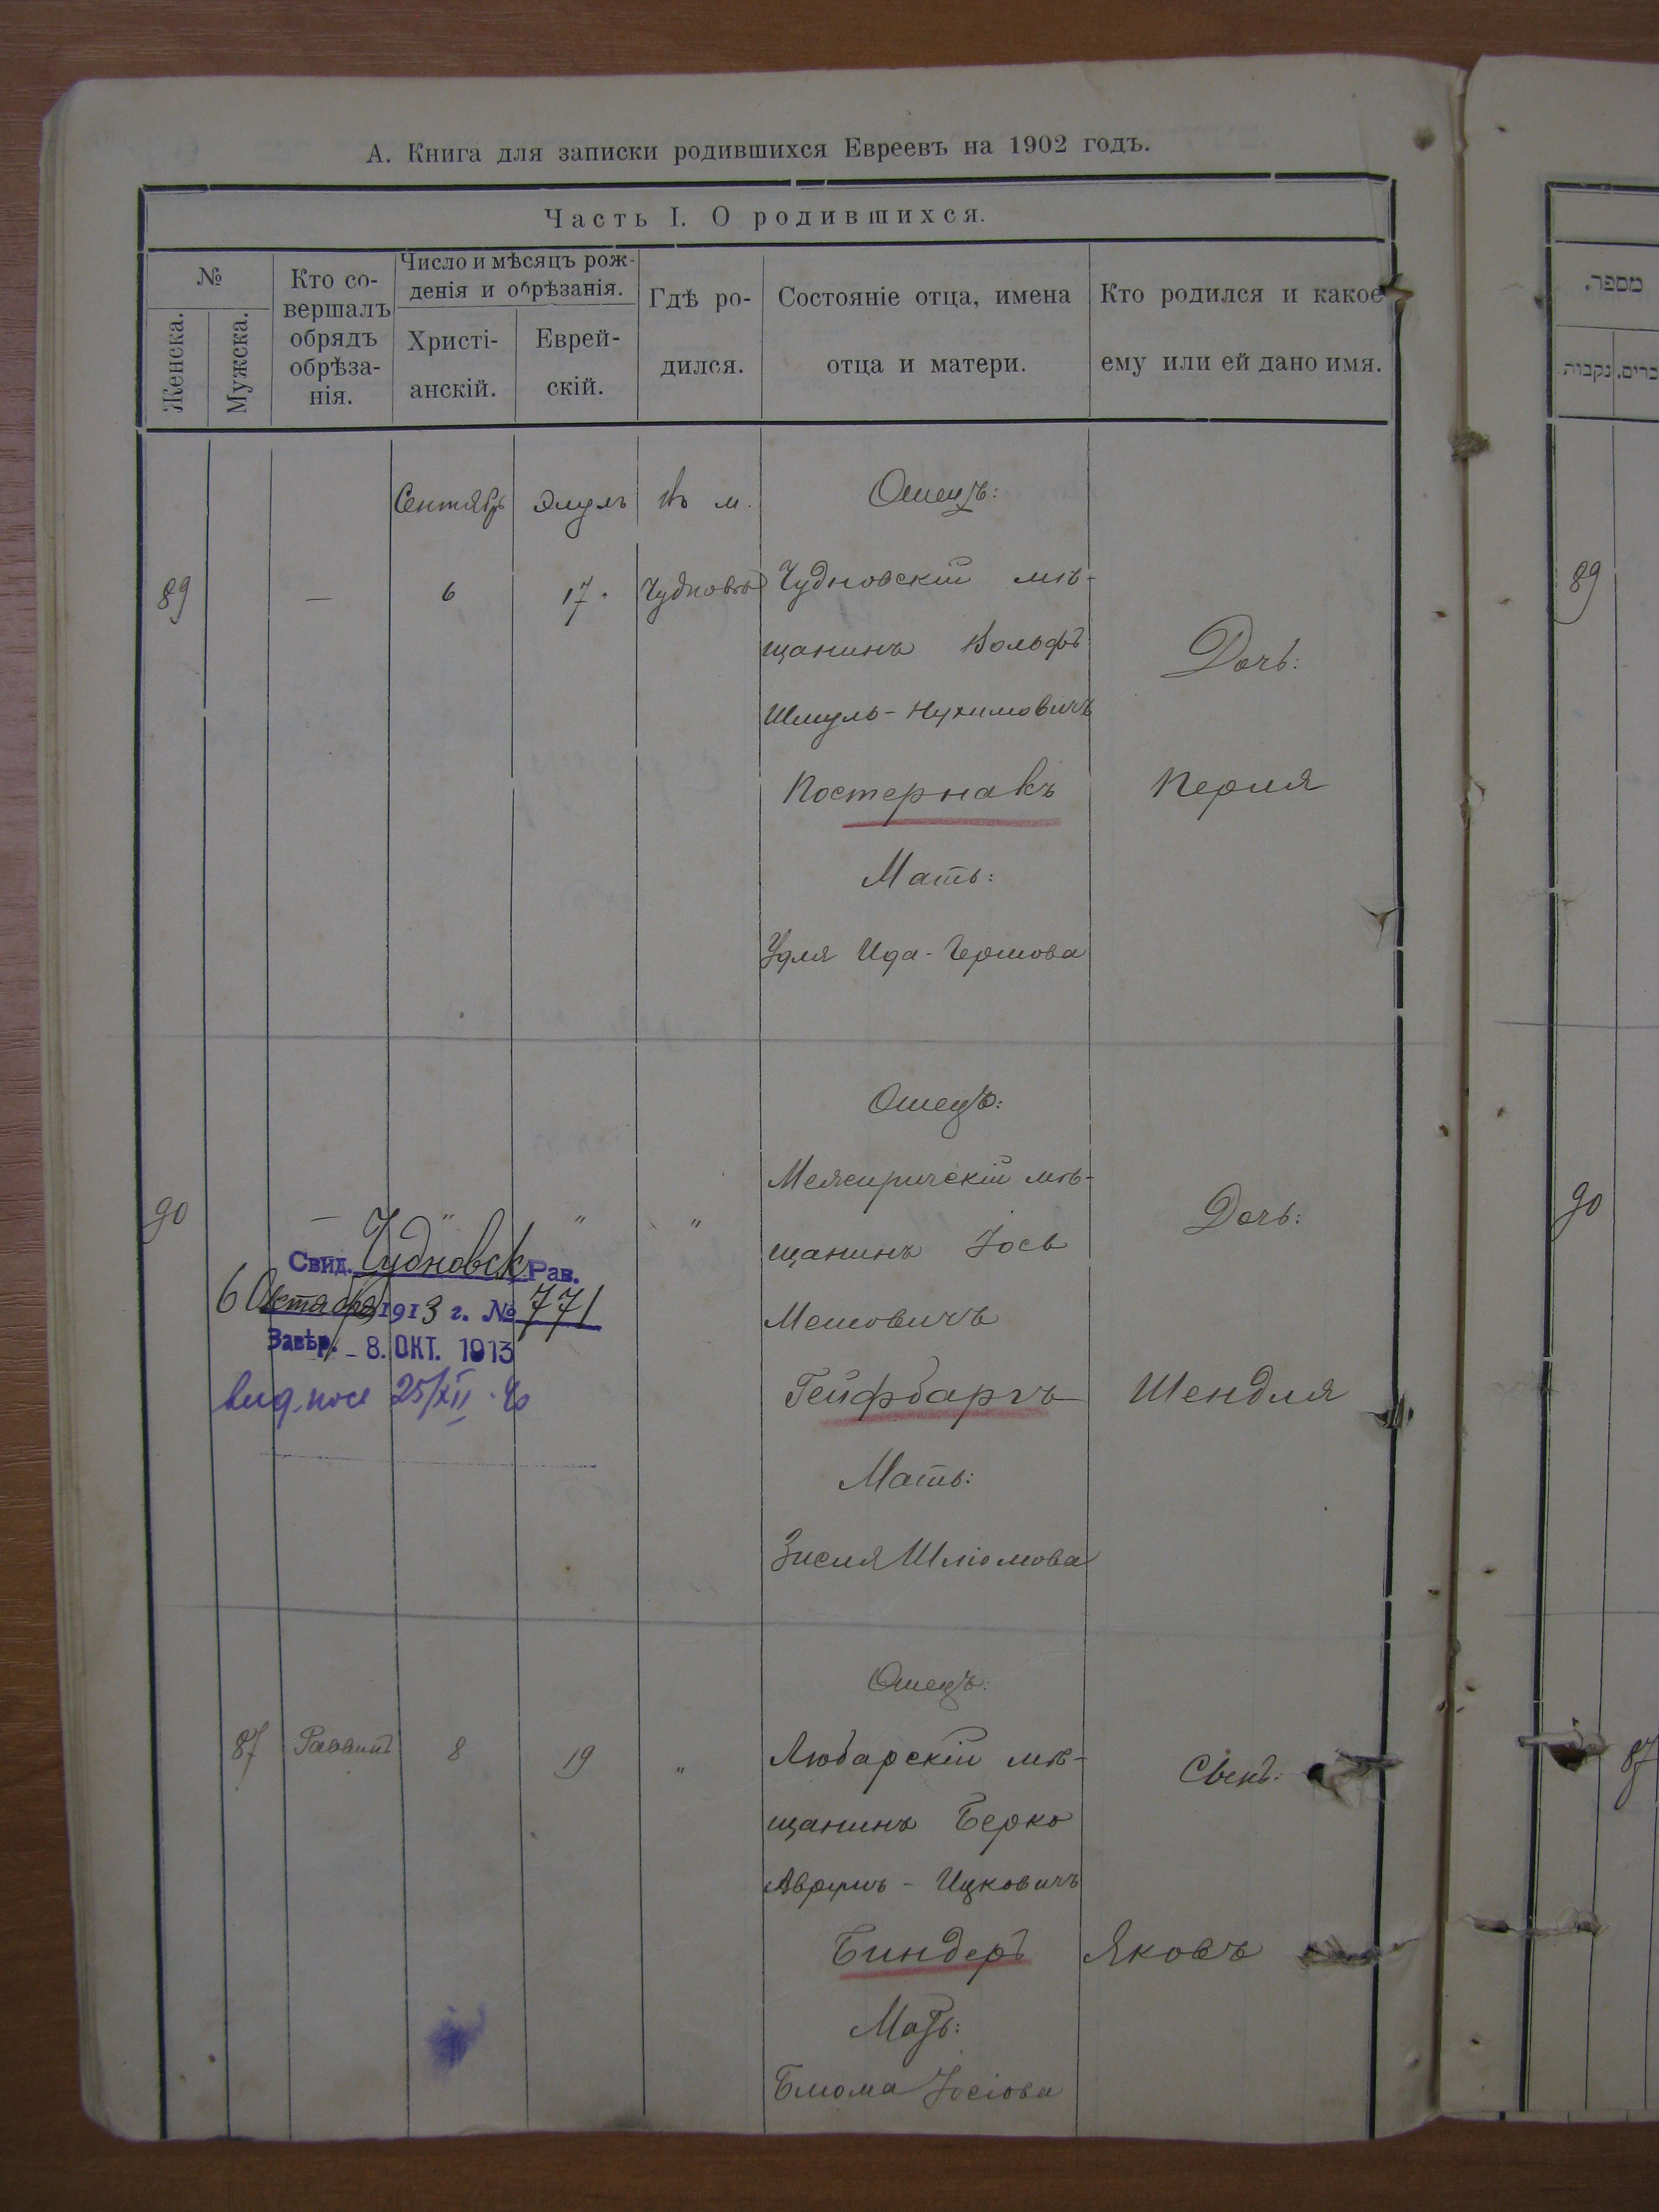 А. Книга для записки родившихся Евреевъ на 1902 годъ.
Часть I. О родившихся.
№
Женска.
Мужска.
Кто со-
вершалъ
обрядъ
обрѣза-
нія.
Число и мѣсяцъ рож-
денія и обрѣзанія.
Христі-
анскій.
Еврей-
скій.
Гдѣ ро-
дился.
Состояніе отца, имена
отца и матери.
Кто родился и какое
ему или ей дано имя.
מספר.
נקבות
Сентябрь Элулъ Въ м. Отецъ:
89 — 6 17. Чудновѣ Чудновскій мѣ-
щанинъ Вольфъ
Дочь:
Шмуль-Нухимовичъ
Постернакъ Перля
Мать:
Удля Ида-Гершова
89
Отецъ:
Межиричскій мѣ-
90 — " " "
Дочь:
щанинъ Іось
Мешовичъ
Гейфбаргъ Шендля
Мать:
Зисля Шліомова
90
Свид. Чудновск Рав.
6 Октября 1913 г. № 771
Завѣр. - 8. ОКТ. 1913
25/XII
Отецъ:
87 Раввинъ 8 19 " Любарскій мѣ-
Сынъ:
щанинъ Берко
Аврумъ-Ицковичъ
Биндеръ Яковъ
Мать:
Блюма Іосіова
87